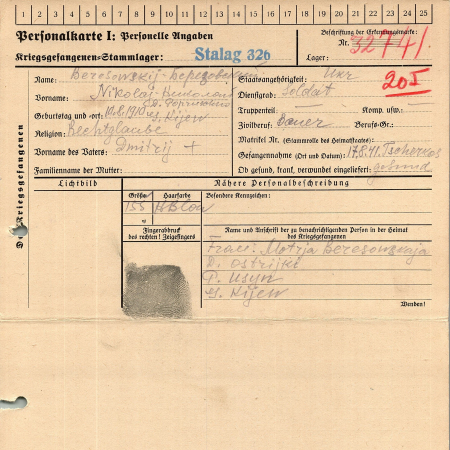 1 2 3 4 5 6 7 8 9 10 11 12 13 14 15 16 17 18 19 20 21 22 23 24 25
Personalkarte I: Personelle Angaben
Kriegsgefangenen-Stammlager: Stalag 326
Beschriftung der Erkennungsmarke
Nr. 32741.
Lager:
20 I
Des Kriegsgefangenen
Name: Beresowskij-Березовский
Vorname: Nikolaj-Николай
Geburtstag und -ort: 10.8.1910
g. Kijew
Religion: Rechtglaube
Vorname des Vaters: Dmitrij +
Familienname der Mutter:
Staatsangehörigkeit: Ukr
Dienstgrad: Soldat
Truppenteil: Komp. usw.
Zivilberuf: Bauer Berufs-Gr.:
Matrikel Nr. (Stammrolle des Heimatstaates):
Gefangennahme (Ort und Datum): 17.8.41. Tscherkas
Ob gesund, krank, verwundet eingeliefert: gesund
Lichtbild
Nähere Personalbeschreibung
Größe Haarfarbe Besondere Kennzeichen:
155 Blon
Fingerabdruck
des rechten! Zeigefingers
Name und Anschrift der zu benachrichtigenden Person in der Heimat
des Kriegsgefangenen
Frau: Motrja Beresowskaja
D. Ostrijki
P. Usyn
G. Kijew
Wenden!